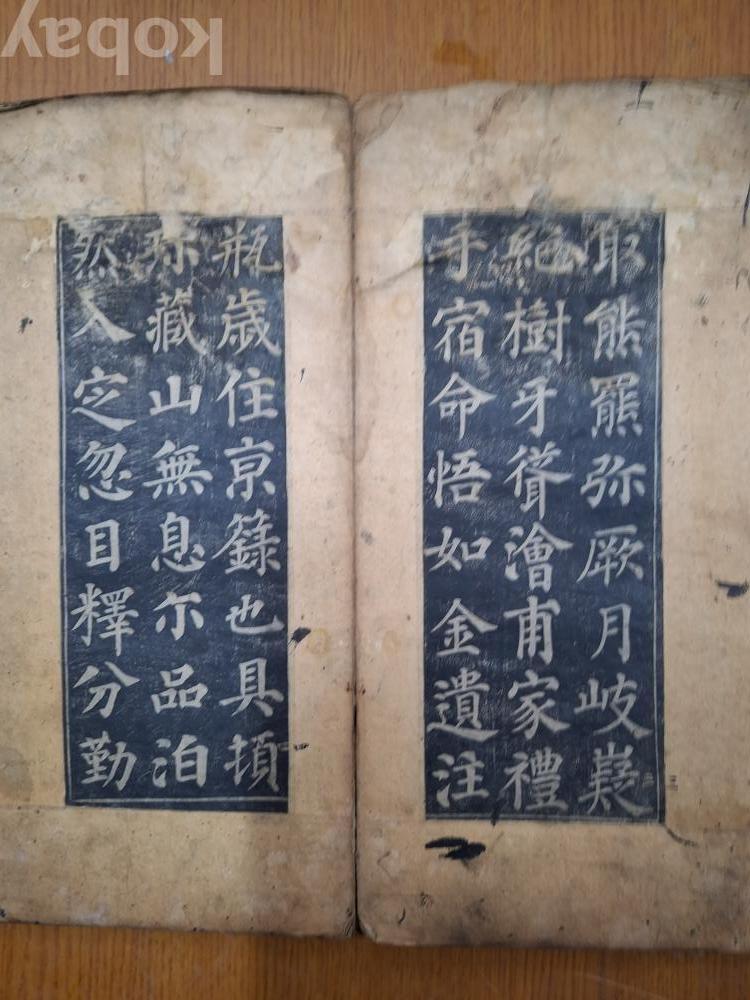 取熊羆弥厥月岐嶷
絶樹牙聳澮甫家禮
手宿命悟如金遺注
瓶歳住京籙也具頓
珎藏山無息尓品泊
然入定忽目釋分勤
kobay